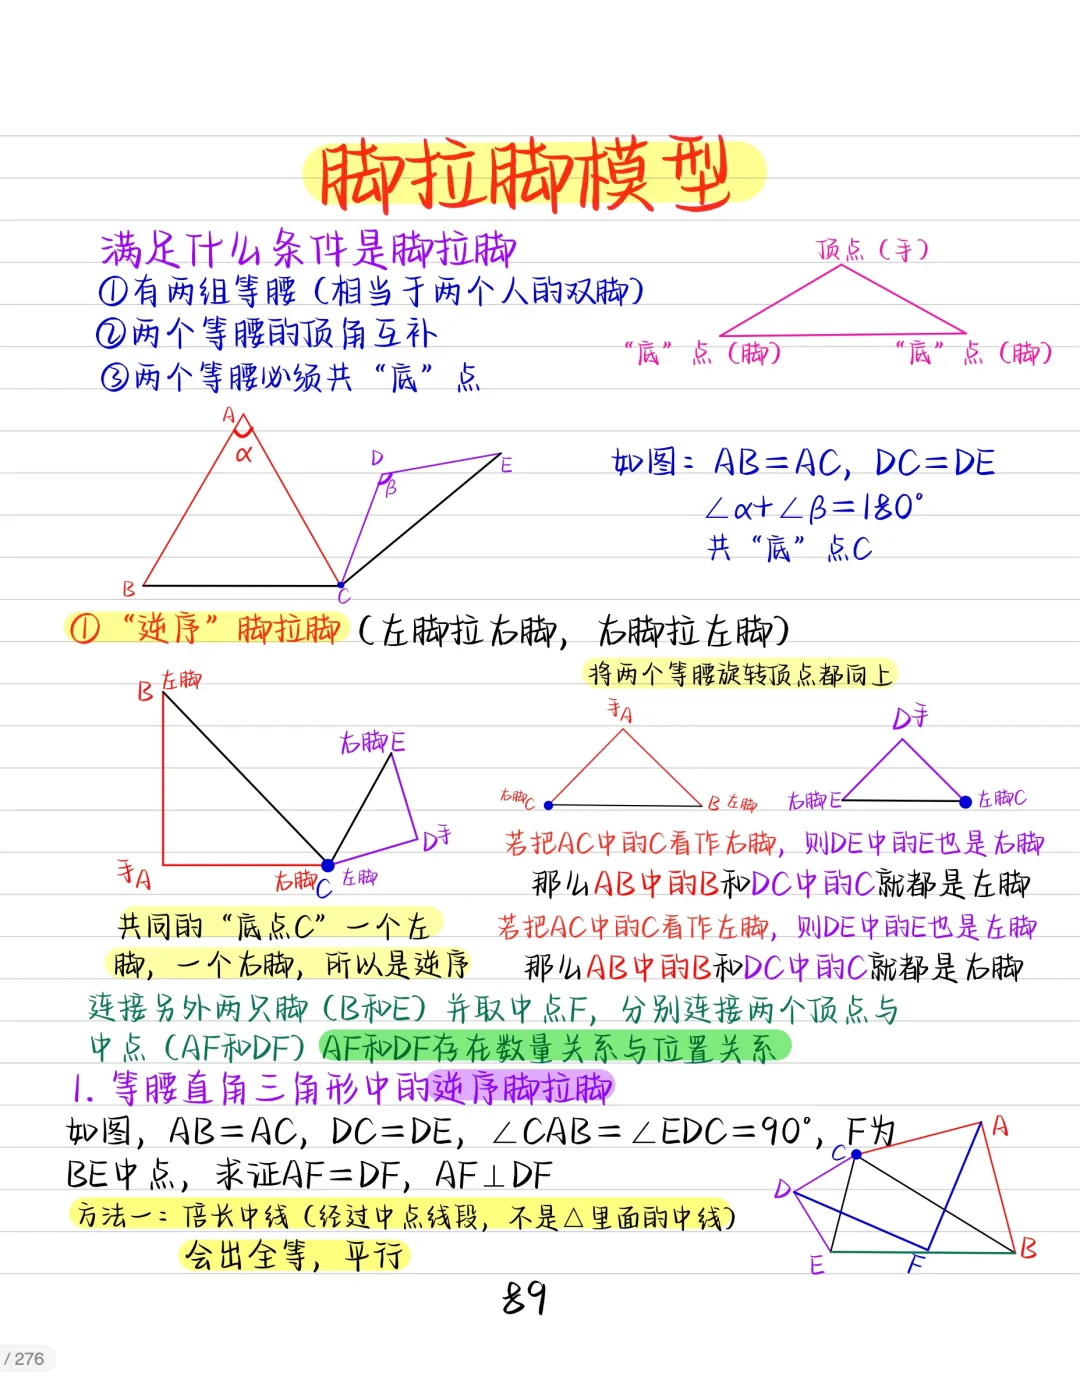 脚拉脚模型
满足什么条件是脚拉脚
①有两组等腰（相当于两个人的双脚）
②两个等腰的顶角互补
③两个等腰必须共“底”点
顶点（手）
“底”点（脚）
“底”点（脚）
A
α
B
C
D
β
E
如图：AB=AC，DC=DE
∠α+∠β=180°
共“底”点C
①“逆序”脚拉脚（左脚拉右脚，右脚拉左脚）
将两个等腰旋转顶点都向上
B 左脚
右脚E
D手
手A
右脚C 左脚
手A
右脚C
B 左脚
D手
右脚E
左脚C
若把AC中的C看作右脚，则DE中的E也是右脚
那么AB中的B和DC中的C就都是左脚
共同的“底点C”一个左
脚，一个右脚，所以是逆序
若把AC中的C看作左脚，则DE中的E也是左脚
那么AB中的B和DC中的C就都是右脚
连接另外两只脚（B和E）并取中点F，分别连接两个顶点与
中点（AF和DF）AF和DF存在数量关系与位置关系
1. 等腰直角三角形中的逆序脚拉脚
如图，AB=AC，DC=DE，∠CAB=∠EDC=90°，F为
BE中点，求证AF=DF，AF⊥DF
方法一：倍长中线（经过中点线段，不是△里面的中线）
会出全等，平行
C
A
D
E
F
B
89
/ 276